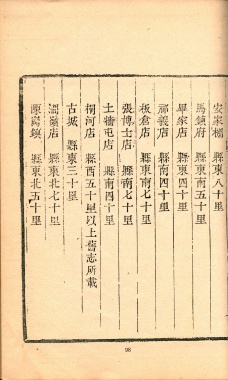 安家樓 縣東八十里
馬鎮府 縣東南五十里
畢家店 縣東四十里
郝義店 縣南四十里
板倉店 縣東南七十里
張博士店 縣南七十里
土橋屯店 縣南四十里
桐河店 縣西五十里以上舊志所載
古城 縣東三十里
店 縣東北七十里
鎮 縣東北五十里
98